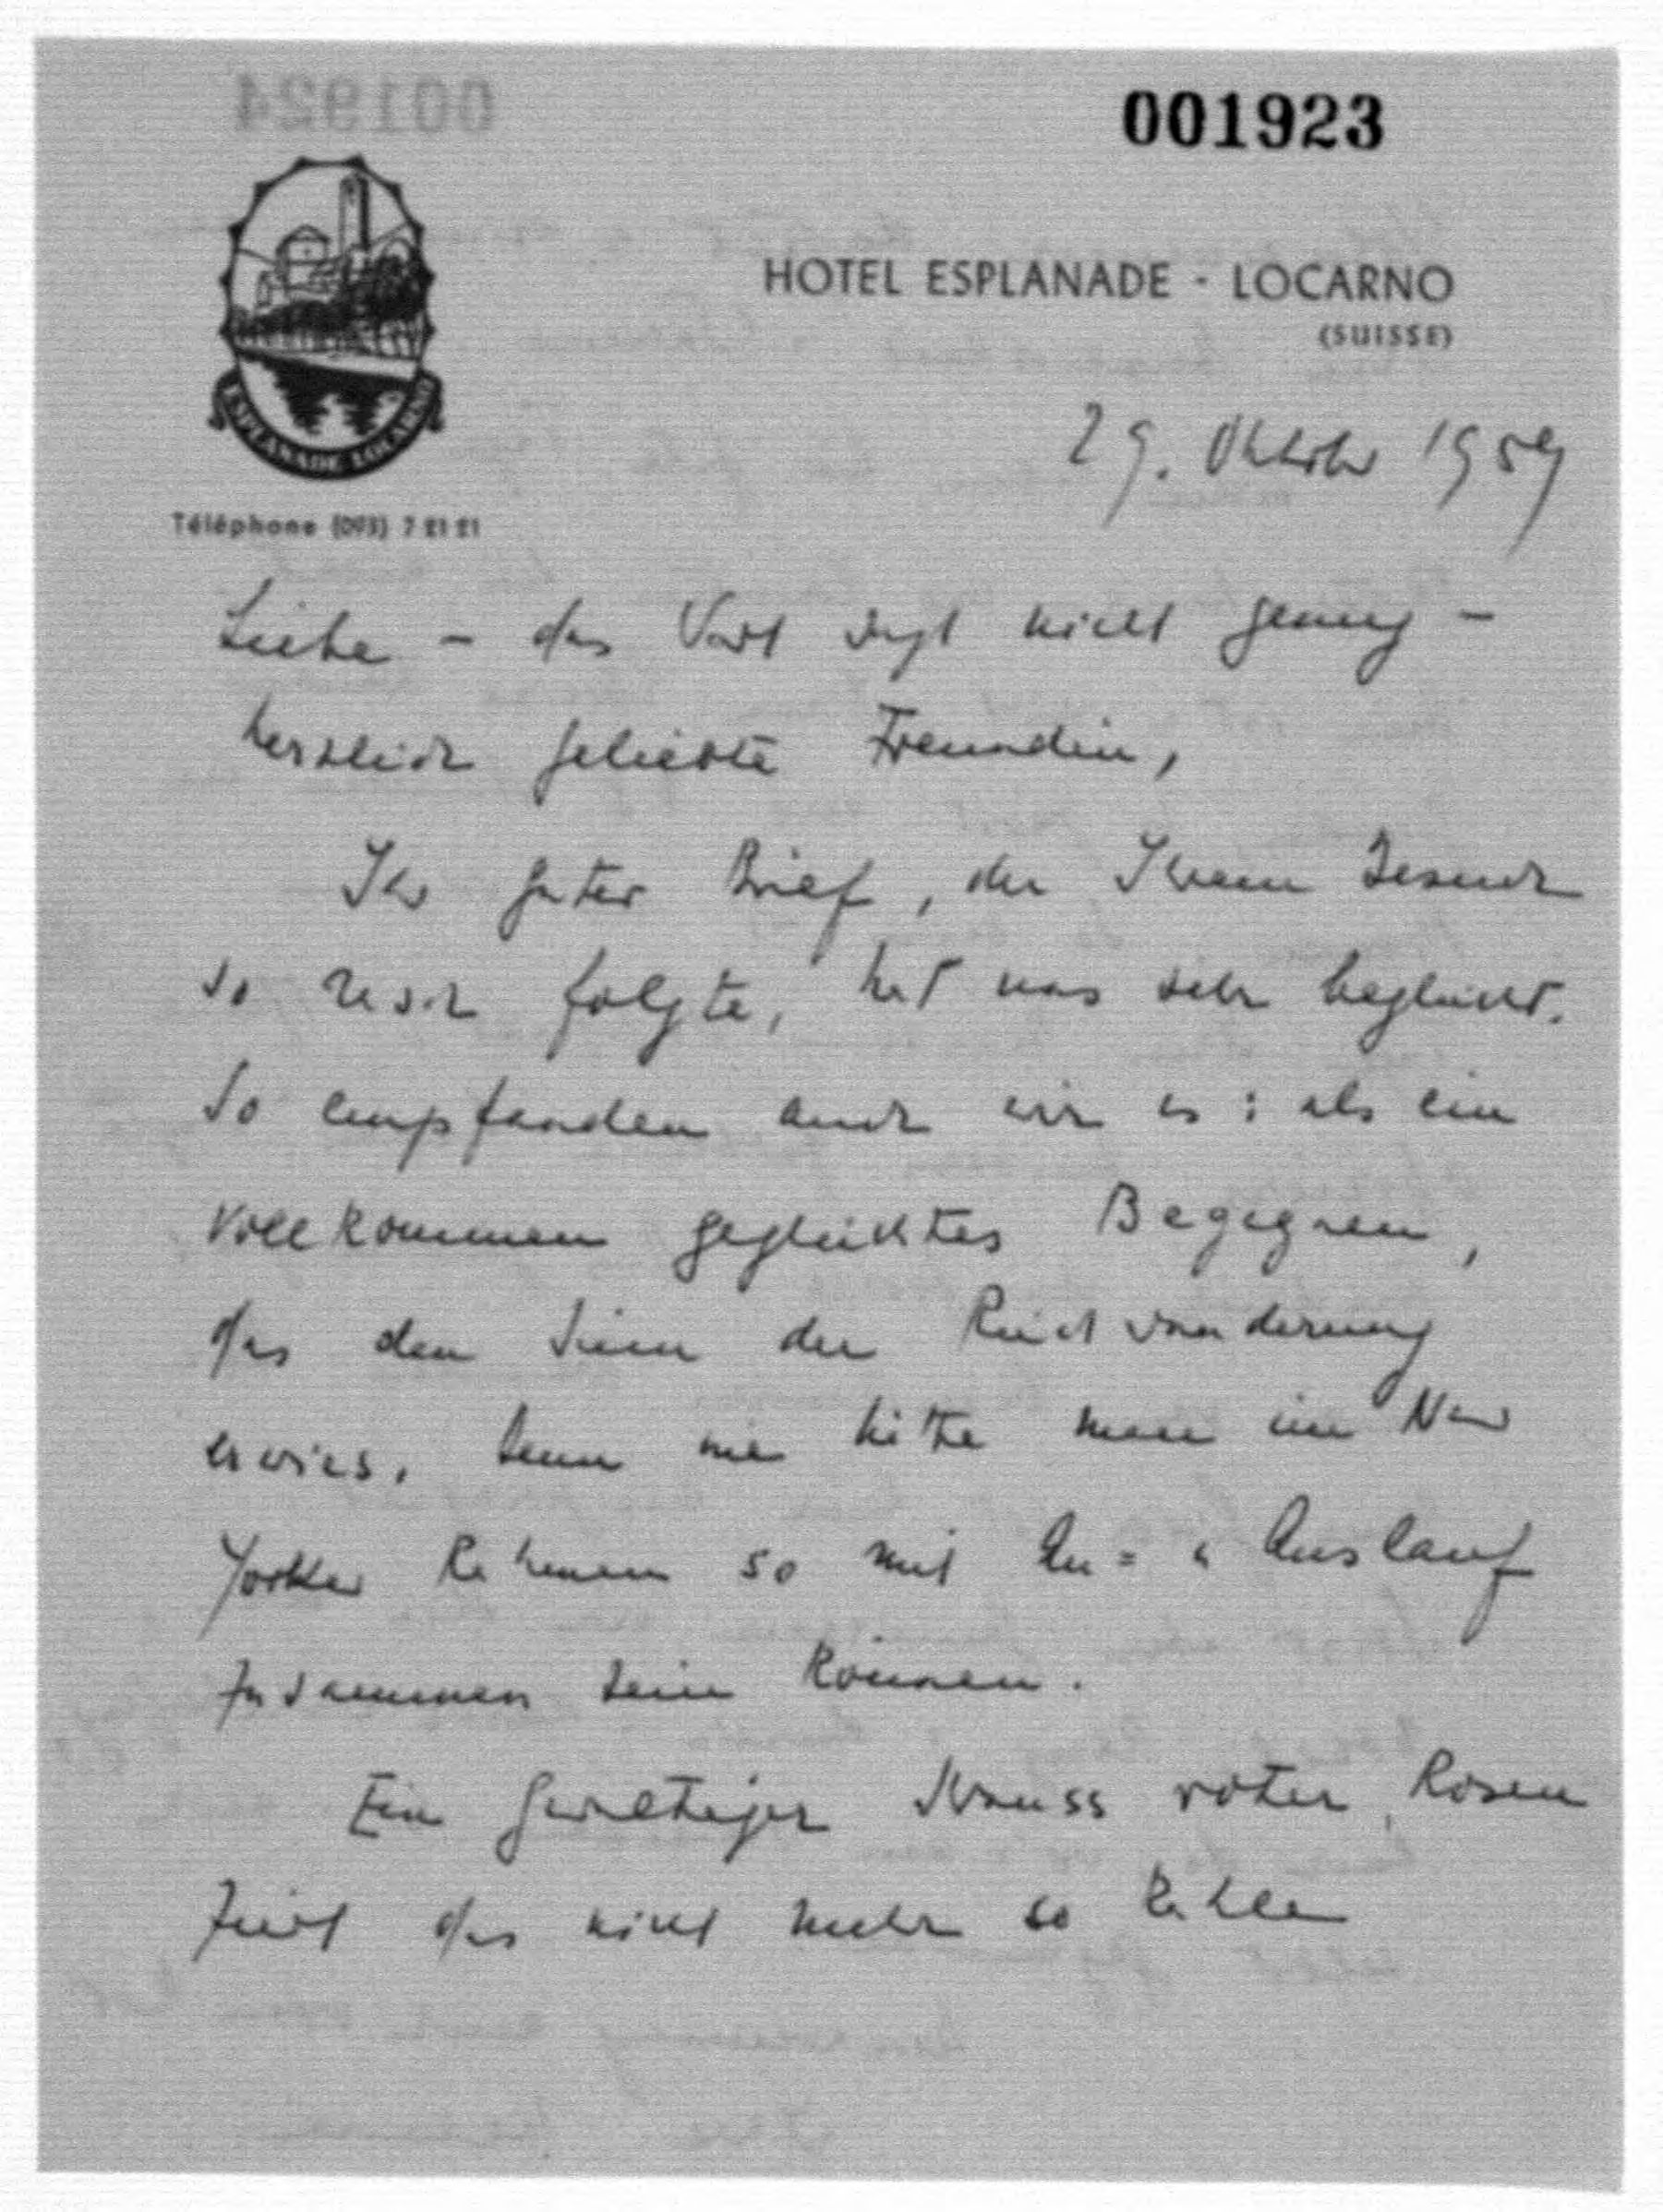 001924
001923
HOTEL ESPLANADE - LOCARNO
(SUISSE)
ESPLANADE LOCARNO
29. Oktober 1959
Téléphone (093) 7 21 21
Liebe – das Wort sagt nicht genug –
herzlich geliebte Freundin,
Ihr guter Brief, der Ihrem Besuch
so rasch folgte, hat uns sehr beglückt.
So empfanden auch wir es: als ein
vollkommen geglücktes Begegnen,
das den Sinn der Rückwanderung
erwies. Denn nie hätte man im New
Yorker Rahmen so mit An= u Auslauf
zusammen sein können.
Ein gewaltiger Strauss roter Rosen
ziert das nicht mehr so kahle